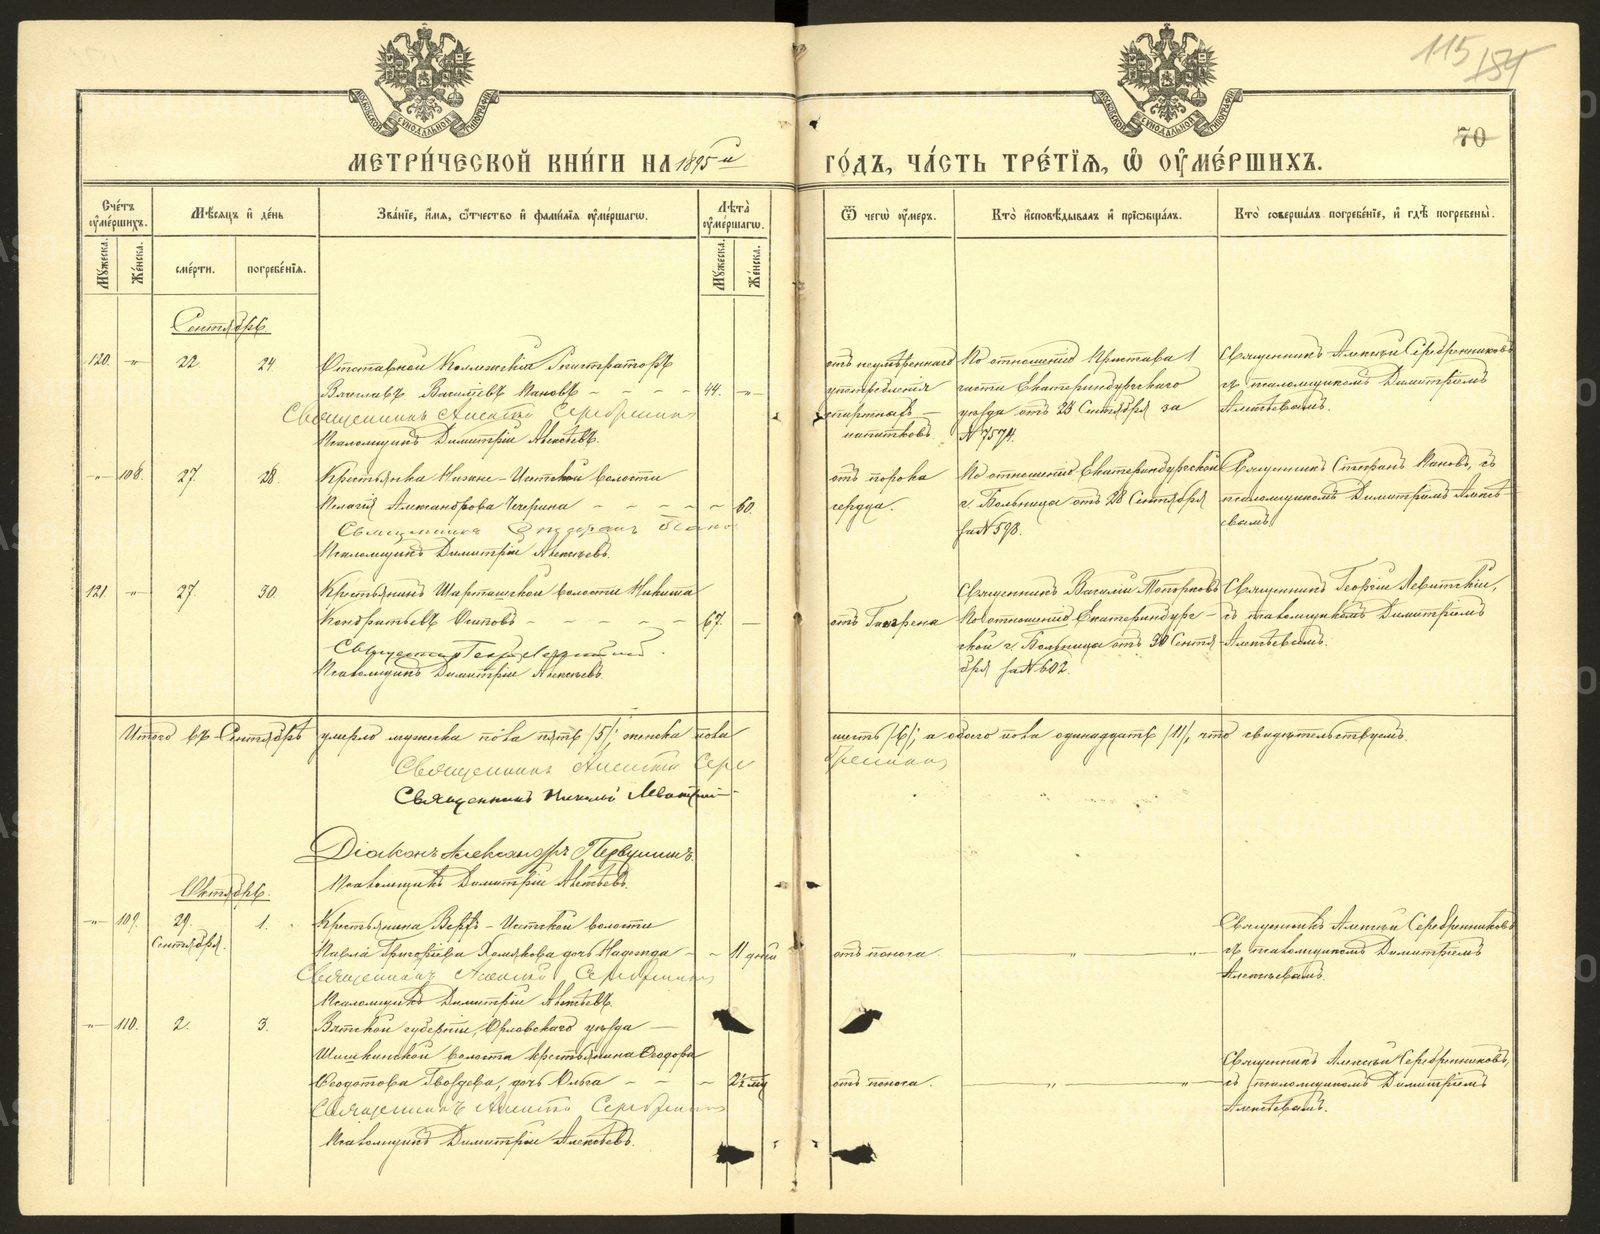 115
134
70
МЕТРИ́ЧЕСКОЙ КНИ́ГИ НА 1895й ГО́ДЪ, ЧА́СТЬ ТРЕ́ТІѦ, Ѡ҆ ОУ҆МЕ́РШИХЪ.
Сче́тъ оу҆ме́ршихъ.
Мѣ́сѧцъ и҆ де́нь
Зва́нїе, и҆́мѧ, ѻ҆́тчество и҆ фами́лїѧ оу҆ме́ршагѡ.
Лѣ́та оу҆ме́ршагѡ.
Ѿ чегѡ̀ оу҆́меръ.
Кто̀ и҆сповѣ́дывалъ и҆ прїѡбща́лъ.
Кто̀ соверша́лъ погребе́нїе, и҆ гдѣ̀ погребены̀.
Мꙋ́жеска.
Же́нска.
сме́рти.
погребе́нїѧ.
Мꙋ́жеска.
Же́нска.
Сентябрь
120. — „ — 22 24 Отставной Коллежскій Регистраторъ
Васильевъ Пановъ — 44. — „ —
Священникъ Алексѣй Серебренник
Псаломщикъ Димитрій Алексѣевъ.
отъ неумѣреннаго
употребленія
спиртныхъ
напитковъ.
По отношенію Пристава 1
части Екатеринбургскаго
уѣзда отъ 23 Сентября за
№ 7574.
Священникъ Алексѣй Серебренниковъ
съ псаломщикомъ Димитріемъ
Алексѣевымъ.
— „ — 108. 27. 28. Крестьянка Нижне-Исетской волости
Пелагія Александрова Чечерина — 60.
Священникъ Стефанъ Панов
Псаломщикъ Димитрій Алексѣевъ.
отъ порока
сердца.
По отношенію Екатеринбургской
г. Больницы отъ 28 Сентября
за № 598.
Священникъ Стефанъ Пановъ, съ
псаломщикомъ Димитріемъ Алексѣ-
евымъ.
121. — „ — 27. 30. Крестьянинъ Шарташской волости Никита
Кондратьевъ Осиповъ — 67. —
Священникъ Георгій Левитскій.
Псаломщикъ Димитрій Алексѣевъ.
отъ Гангрена
Священникъ Василій Топорковъ
По отношенію Екатеринбург-
ской г. Больницы отъ 30 Сентя-
бря за № 602.
Священникъ Георгій Левитскій,
съ псаломщикомъ Димитріемъ
Алексѣевымъ.
Итого въ Сентябрѣ умерло мужеска пола пять /5/, женска пола шесть /6/, а обоего пола одинадцать /11/, что свидѣтельствуемъ.
Священникъ Алексѣй Серебренник
Священникъ Николай Левитскій
Діаконъ Александръ Первушинъ.
Псаломщикъ Димитрій Алексѣевъ.
Октябрь.
— „ — 109. 29. Сентября. 1. Крестьянина Верхъ-Исетской волости
Павла Григорьева Хомякова дочь Надежда — 11 дней
Священникъ Алексѣй Серебренник
Псаломщикъ Димитрій Алексѣевъ.
отъ поноса.
— „ — „ —
Священникъ Алексѣй Серебренниковъ
съ псаломщикомъ Димитріемъ
Алексѣевымъ.
— „ — 110. 2. 3. Вятской губерніи, Орловскаго уѣзда
Шишкинской волости крестьянина Ѳеодора
Ѳеодотова Гвоздева, дочь Ольга — 2½ мѣ
Священникъ Алексѣй Серебренник
Псаломщикъ Димитрій Алексѣевъ.
отъ поноса.
— „ — „ —
Священникъ Алексѣй Серебренниковъ,
съ псаломщикомъ Димитріемъ
Алексѣевымъ.